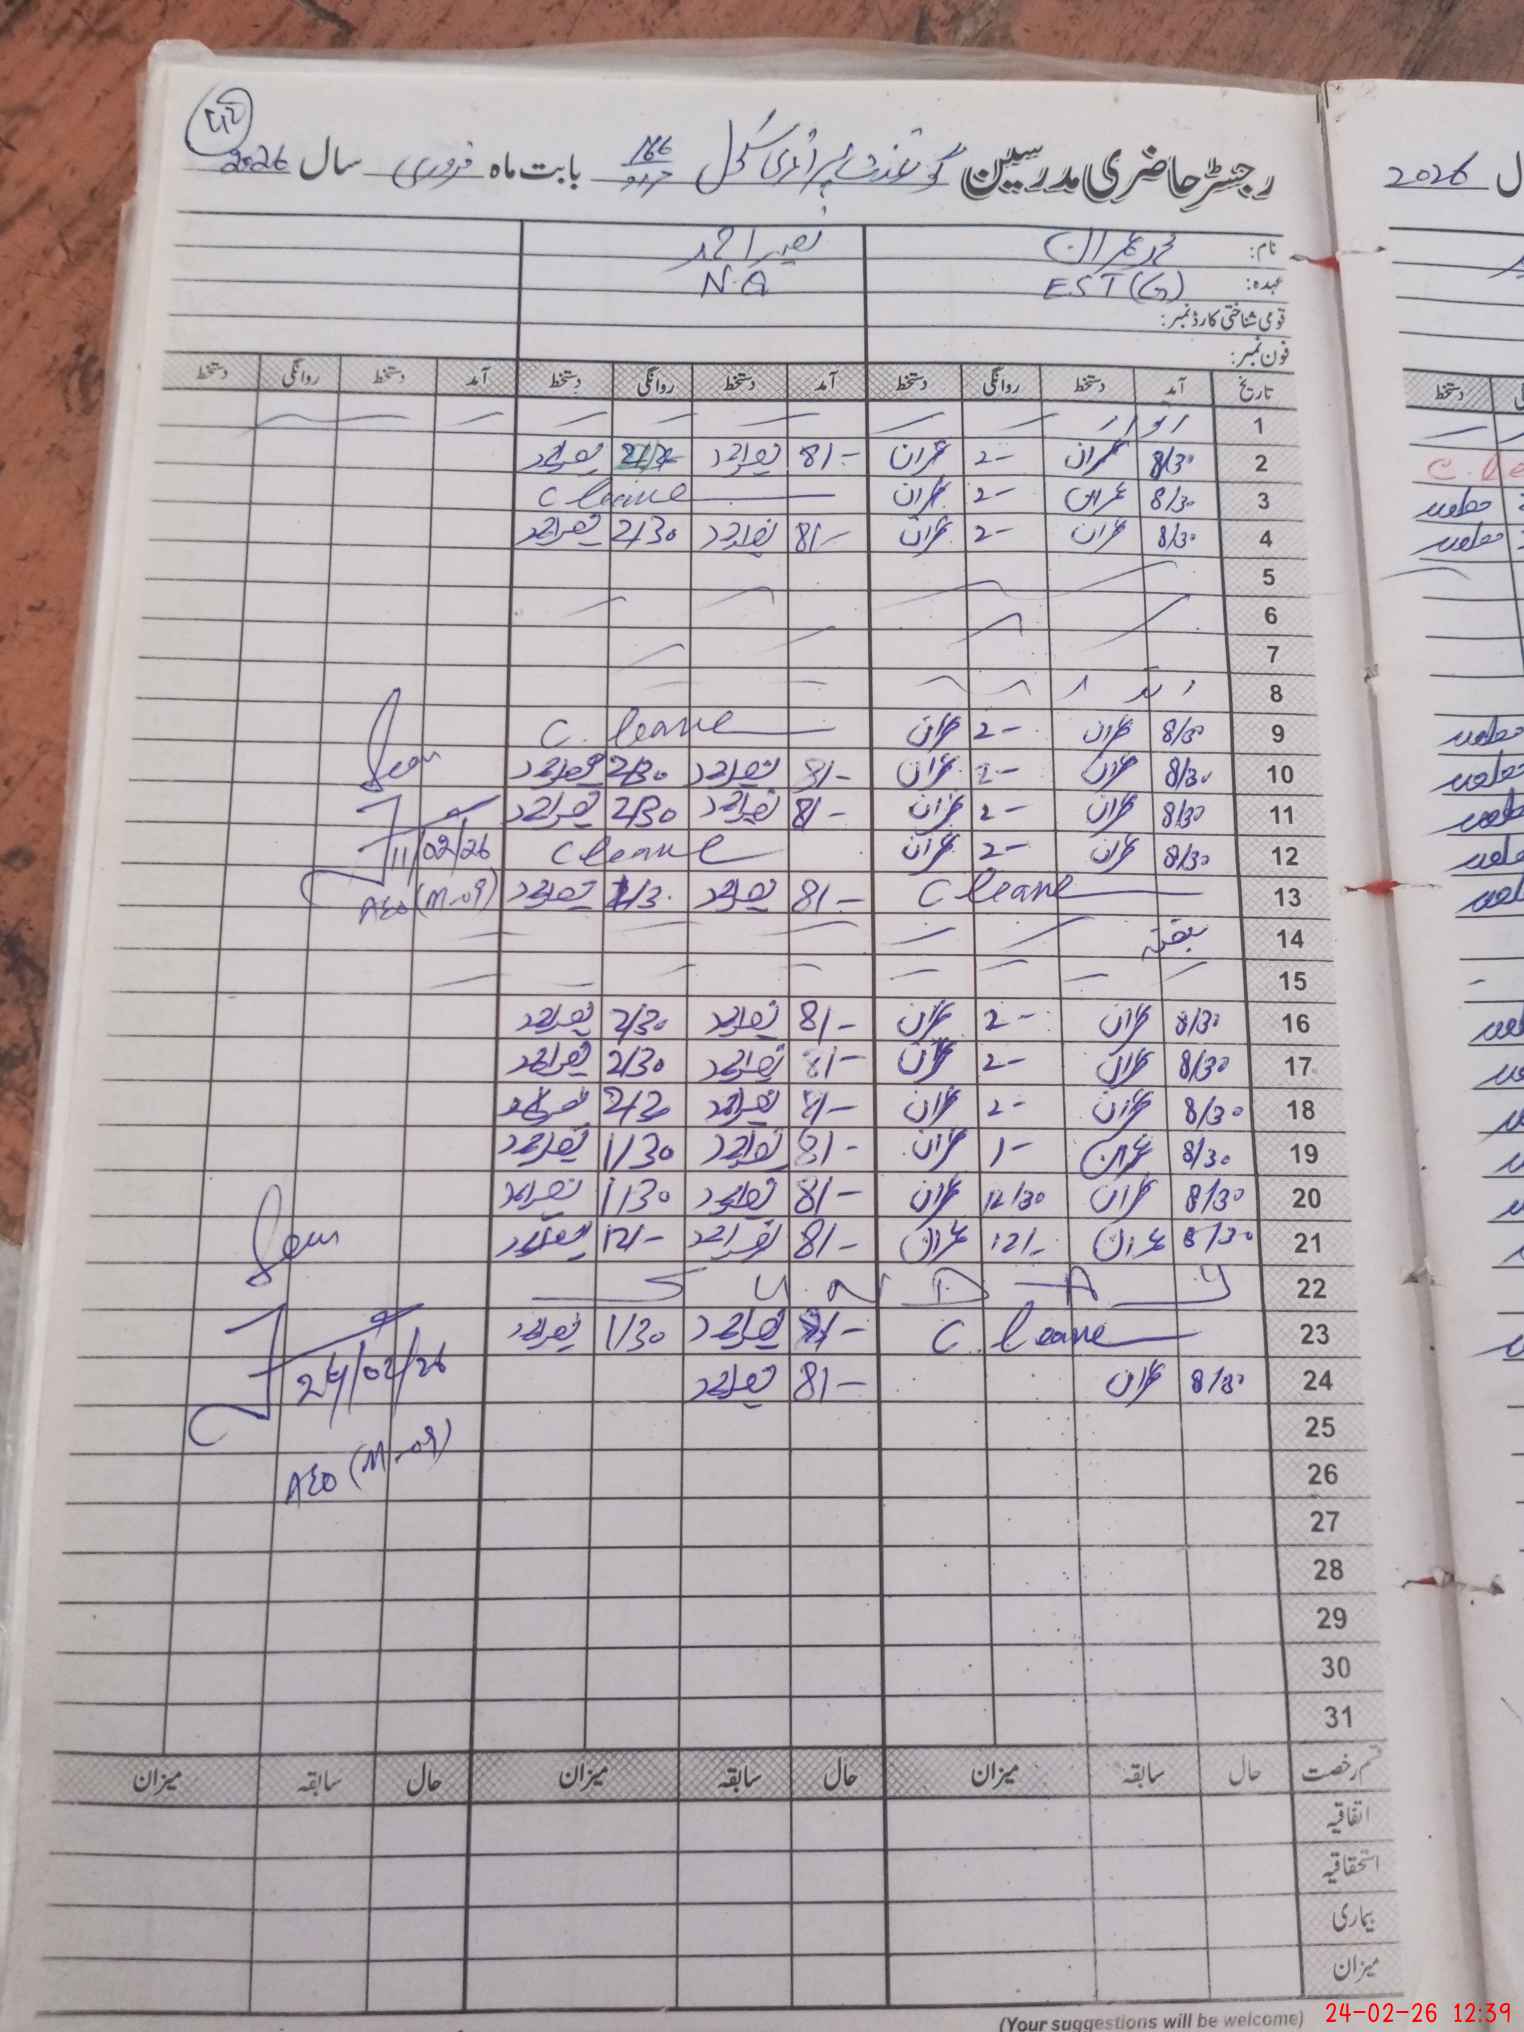 رجسٹر حاضری مدرسین گورنمنٹ پرائمری سکول 166 بابت ماہ فروری سال 2026
نام: محمد عمران نصیر احمد
عہدہ: EST (G) N.A
قومی شناختی کارڈ نمبر:
فون نمبر:
تاریخ آمد دستخط روانگی دستخط آمد دستخط روانگی دستخط آمد دستخط روانگی دستخط
1 اتوار
2 8/30 عمران 2- عمران 8/- نصیر احمد نصیر احمد
3 8/30 عمران 2- عمران C leave
4 8/30 عمران 2- عمران 8/- نصیر احمد 2/30 نصیر احمد
5
6
7
8 اتوار
9 8/30 عمران 2- عمران C. leave
10 8/30 عمران 2- عمران 8/- نصیر احمد 2/30 نصیر احمد
11 8/30 عمران 2- عمران 8/- نصیر احمد 2/30 نصیر احمد
12 8/30 عمران 2- عمران C leave 11/02/26
13 C leave 8/- نصیر احمد نصیر احمد AEO (M-09)
14 ہفتہ
15
16 8/30 عمران 2- عمران 8/- نصیر احمد 2/30 نصیر احمد
17 8/30 عمران 2- عمران 8/- نصیر احمد 2/30 نصیر احمد
18 8/30 عمران 2- عمران 8/- نصیر احمد 2/30 نصیر احمد
19 8/30 عمران 1- عمران 8/- نصیر احمد 1/30 نصیر احمد
20 8/30 عمران 12/30 عمران 8/- نصیر احمد 1/30 نصیر احمد
21 8/30 عمران 12/- عمران 8/- نصیر احمد 12/- نصیر احمد
22 SUNDAY
23 C. leave 8/- نصیر احمد 1/30 نصیر احمد
24 8/30 عمران 8/- نصیر احمد 24/02/26
25
26 AEO (M-09)
27
28
29
30
31
قسم رخصت حال سابقہ میزان حال سابقہ میزان حال سابقہ میزان
اتفاقیہ
استحقاقیہ
بیماری
میزان
(Your suggestions will be welcome)
2026
دستخط
24-02-26 12:39